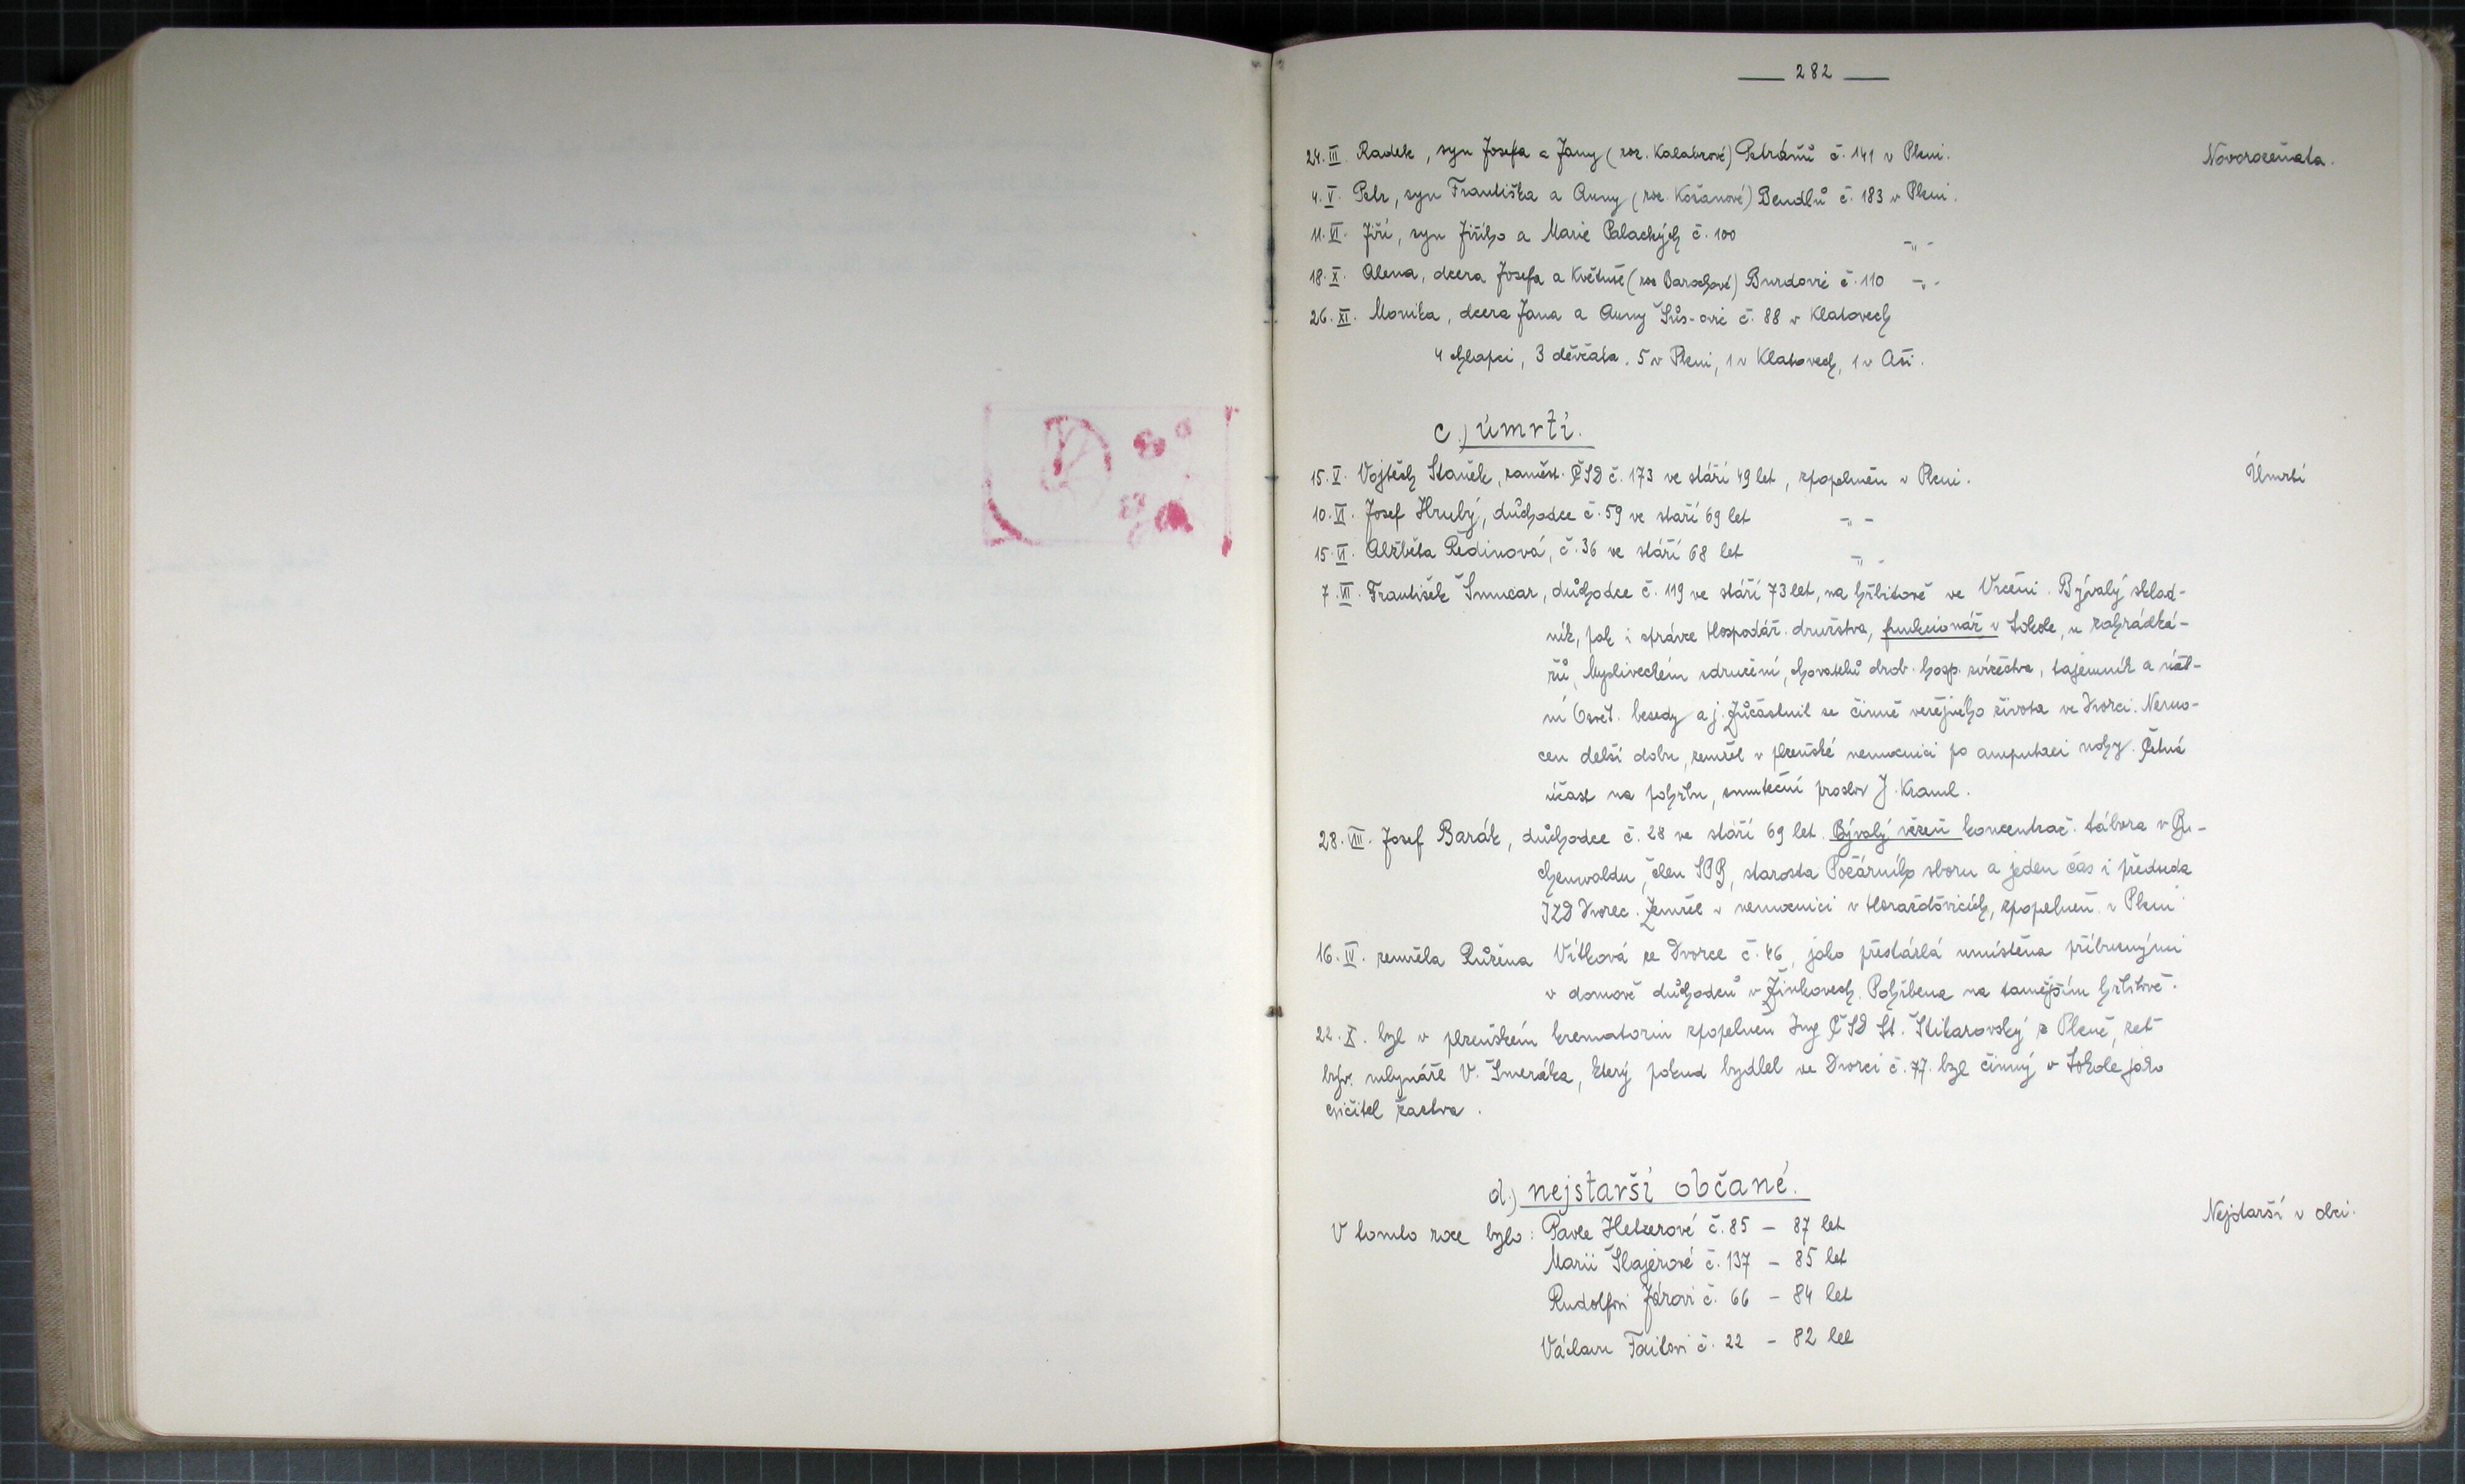 282
Novorozeňata.
24. III. Radek, syn Josefa a Jany (roz. Kalabzové) Petráňů č. 141 v Plzni.
4. V. Petr, syn Františka a Anny (roz. Kožanové) Bendlů č. 183 v Plzni.
11. VI. Jiří, syn Jiřího a Marie Palackých č. 100 -„-
18. X. Alena, dcera Josefa a Květuše (roz Barochové) Burdové č. 110 -„-
26. XI. Monika, dcera Jana a Anny č. 88 v Klatovech
4 chlapci, 3 děvčata. 5 v Plzni, 1 v Klatovech, 1 v Aši.
c.) úmrtí.
Úmrtí
15. V. Vojtěch Staněk, zaměst. ČSD č. 173 ve stáří 49 let, zpopelněn v Plzni.
10. VI. Josef Hrubý, důchodce č. 59 ve staří 69 let -„-
15. VI. Alžběta Ředinová, č. 36 ve stáří 68 let -„-
7. VII. František Šmucar, důchodce č. 119 ve stáří 73 let, na hřbitově ve Vrčeni. Bývalý sklad-
ník, pak i správce Hospodář. družstva, funkcionář v Sokole, u zahrádká-
řů, Mysliveckém sdružení, chovatelů drob. hosp. zvířectva, tajemník a účet-
ní Osvět. besedy a j. Zůčastnil se činně veřejného života ve Dvorci. Nemo-
cen delší dobu, zemřel v plzeňské nemocnici po amputaci nohy. Četná
účast na pohřbu, smuteční proslov J. Kraml.
28. VIII. Josef Barák, důchodce č. 28 ve stáří 69 let. Bývalý vězeň koncentrač. tábora v Bu-
chenwaldu, člen SPB, starosta Požárního sboru a jeden čas i předseda
JZD Dvorec. Zemřel v nemocnici v Horažďovicích, zpopelněn v Plzni
16. IV. zemřela Růžena Vítková ze Dvorce č. 46, jako přestárlá umístěna příbuznými
v domově důchodců v Žinkovech. Pohřbena na tamějším hřbitově.
22. X. byl v plzeňském krematoriu zpopelněn Ing ČSD St. Štikarovský z Plzně, zeť
býv. mlynáře V. Smeráka, který pokud bydlel ve Dvorci č. 77. byl činný v Sokole jako
cvičitel žactva.
d.) nejstarší občané.
Nejstarší v obci.
V tomto roce bylo: Pavle Helzerové č. 85 – 87 let
Marii Šlajerové č. 137 – 85 let
Rudolfovi Járovi č. 66 – 84 let
Václavu Faitovi č. 22 – 82 let